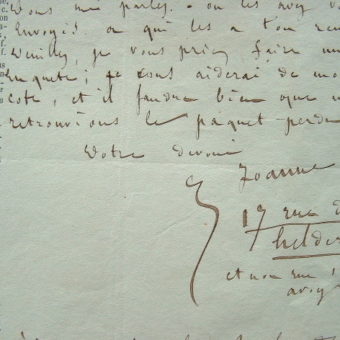 vous me parlez. ou les avez v
envoyés? ou qui les a
Veuillez, je vous prie, faire un
enquete; je vous aiderai de mo
coté, et il faudra bien que n
retrouvions le paquet perdu
Votre devoué
Joanne
17 rue d
helder
et non rue